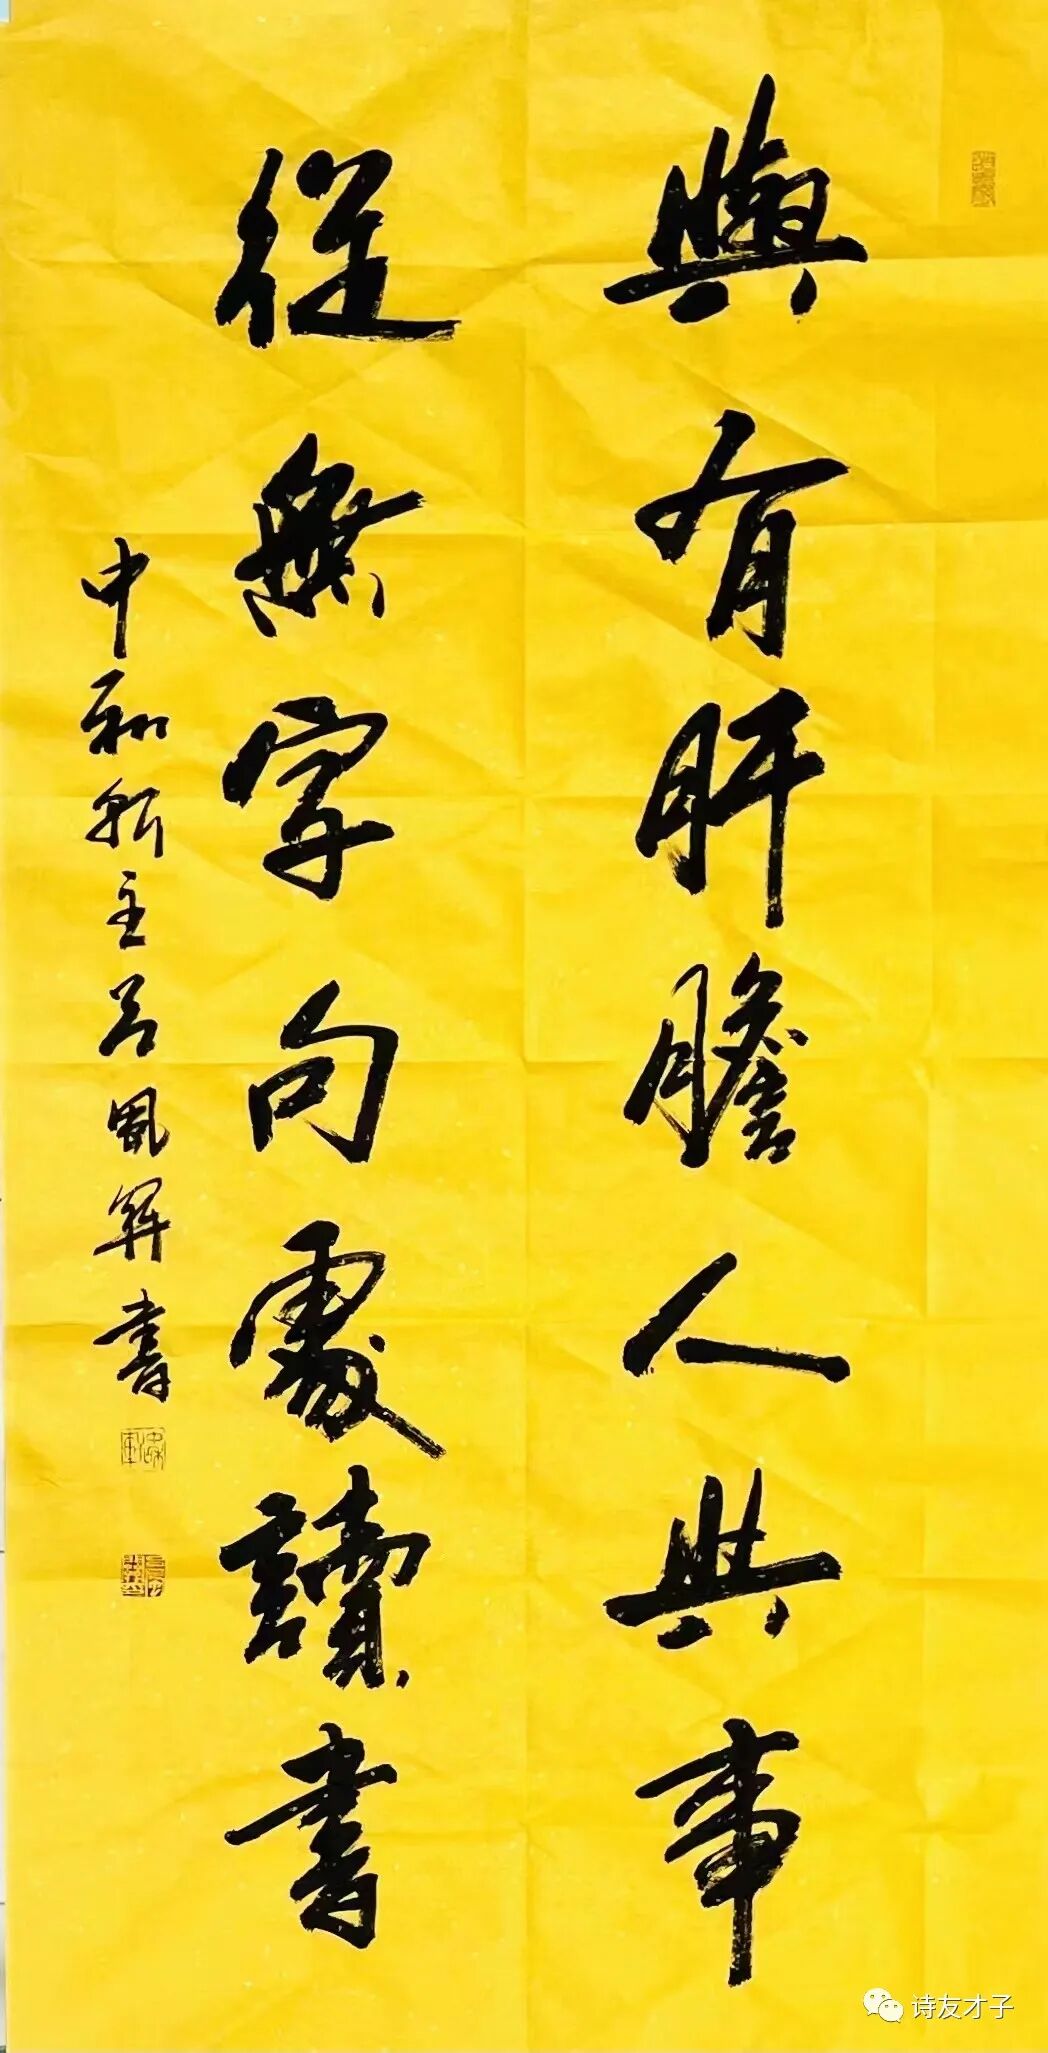 與有肝膽人共事
從無字句處讀書
中和軒主呂鳳書
诗友才子